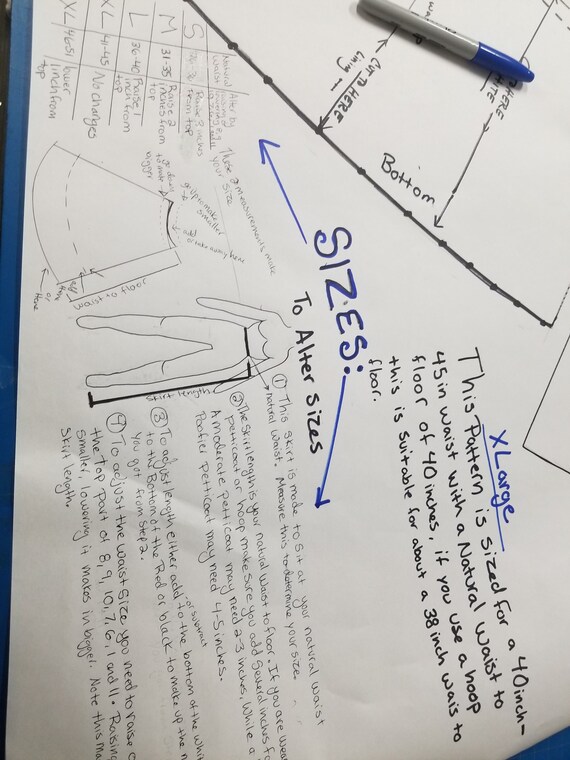 XLarge
This Pattern is sized for a 40inch-
45in waist with a Natural Waist to
floor of 40 inches, if you use a hoop
this is suitable for about a 38 inch wais to
floor.
SIZES:
To Alter Sizes
① This skirt is made to sit at your natural waist
natural waist. Measure this to determine your size
② The Skirt length is your natural waist to floor. If you are wea
petticoat or hoop make sure you add several inches fo
A moderate petticoat may need 2-3 inches, while a
Poofier petticoat may need 4-5 inches.
③ To adjust length either add to the bottom of the whi
or subtract
to the Bottom of the Red or black to make up the
you got from step 2.
④ To adjust the waist size you need to raise
the top part of 8, 9, 10, 7, 6, 1 and 11. Raising
smaller, lowering it makes in bigger. Note this ma
skirt length.
skirt length
waist to floor
These 2 measurements make
your size
Natural
waist
Alter by
S
Raise 3 inches
from top
M
31-35
Raise 2
inches from
top
L
36-40
Raise 1
inch from
top
XL
41-45
No changes
XL
46-51
lower
1 inch from
top
go up to make
smaller
go down
to make
bigger
add
or take away here
or
Here
CUT TO HERE
Lining
Bottom
HERE